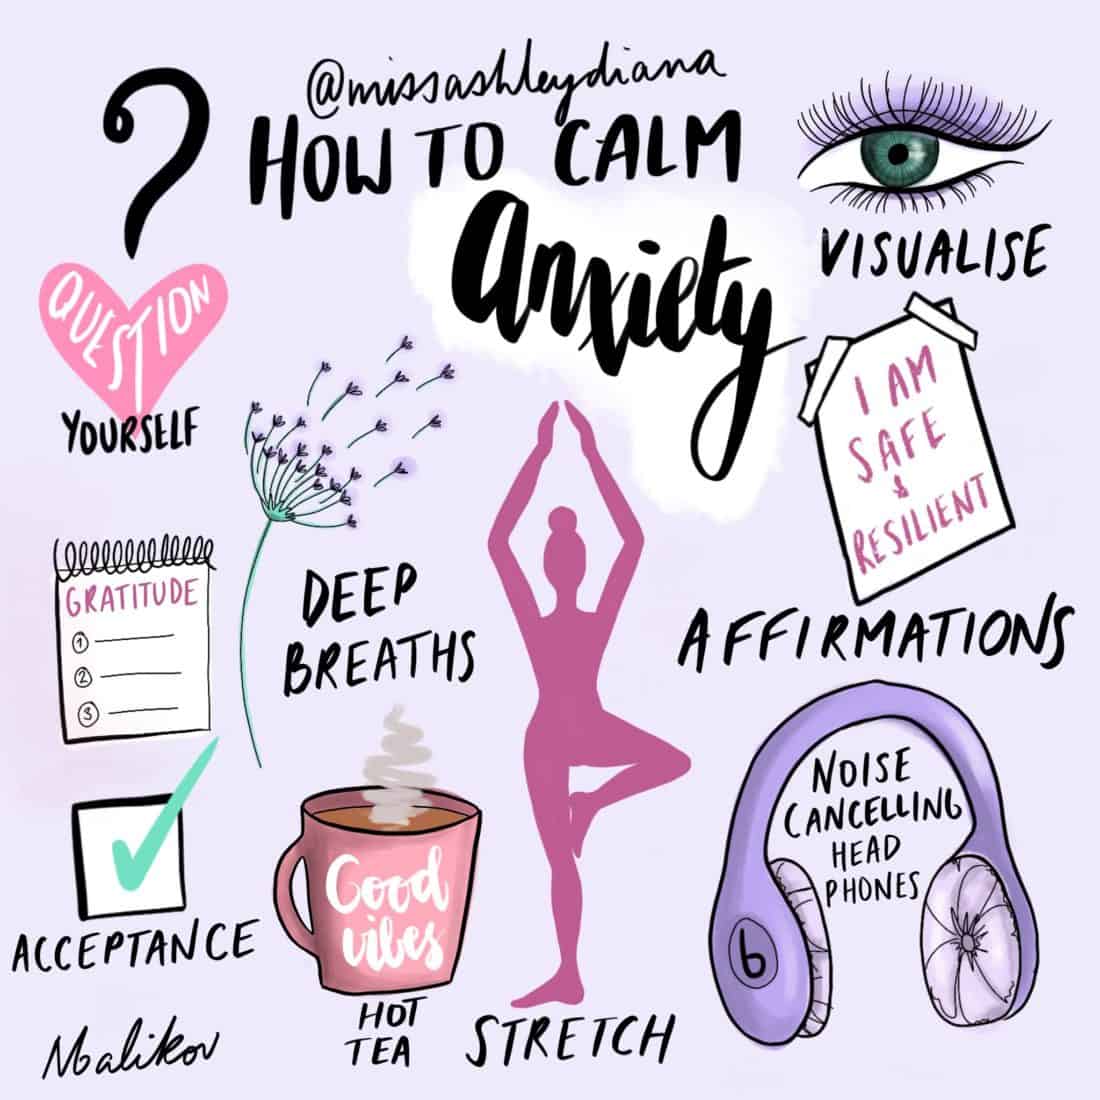 @missashleydiana
HOW TO CALM
Anxiety
VISUALISE
QUESTION
YOURSELF
I AM
SAFE
&
RESILIENT
AFFIRMATIONS
GRATITUDE
1
2
3
DEEP
BREATHS
NOISE
CANCELLING
HEAD
PHONES
b
ACCEPTANCE
Good
vibes
HOT
TEA
STRETCH